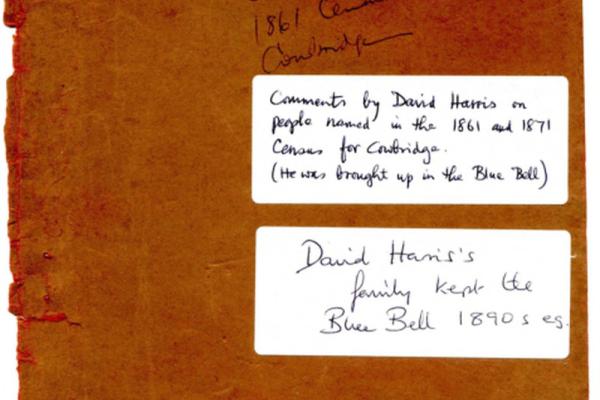 1861 Census
Cowbridge
Comments by David Harris on
people named in the 1861 and 1871
Census for Cowbridge.
(He was brought up in the Blue Bell)
David Harris's
family kept the
Blue Bell 1890s eg.